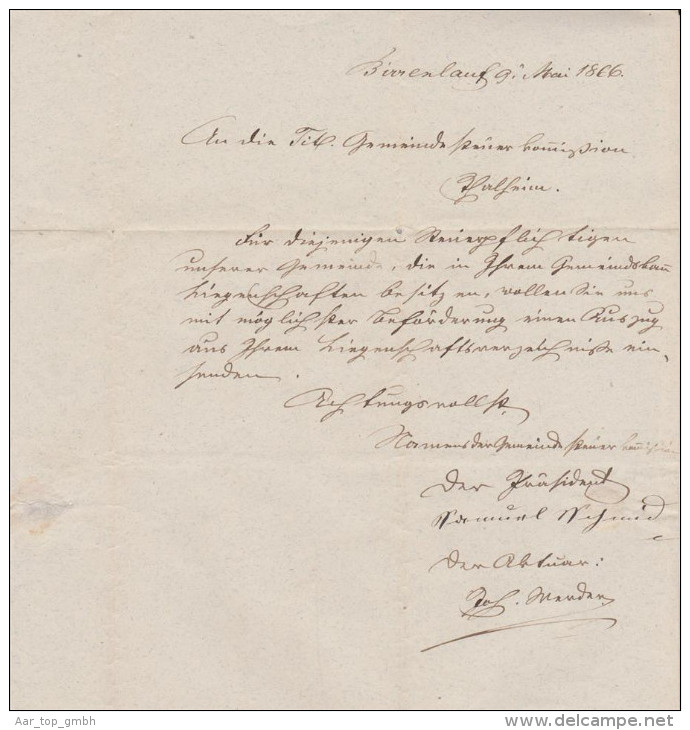 Birrenlauf 9. Mai 1866.
An die Titl. Gemeindesteuerkom̄ission
Thalheim.
Für diejenigen Steuerpflichtigen
unserer Gemeinde, die in Ihrem Gemeindsbann
Liegenschaften besitzen, wollen Sie uns
mit möglichster Beförderung einen Auszug
aus Ihrem Liegenschaftsverzeichnisse ein-
senden.
Achtungsvollst
Namens der Gemeindesteuerkommission
Der Präsident
Samuel Schmid
Der Aktuar:
Joh. Werder
Aar_top_gmbh
delcampe.net